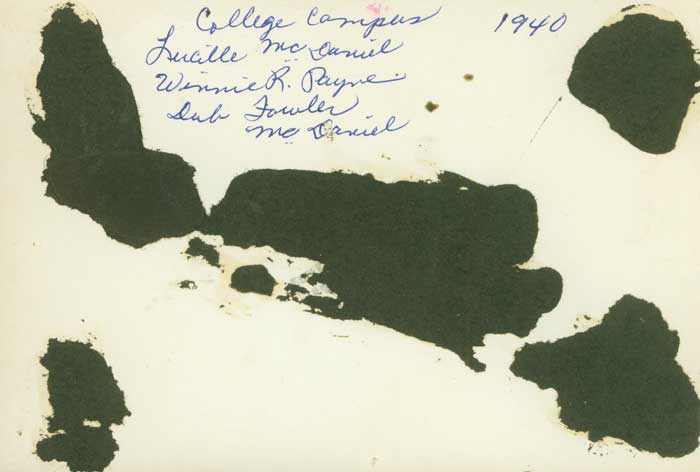 College Campus 1940
Lucille McDaniel
Winnie R. Payne.
Dub Fowler
McDaniel